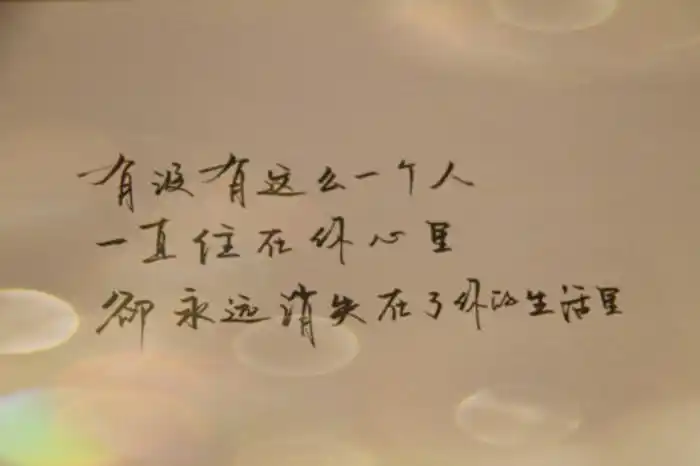 有没有这么一个人
一直住在你心里
却永远消失在了你的生活里